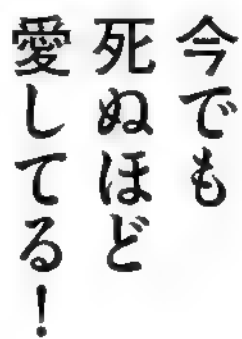 今でも
死ぬほど
愛してる！